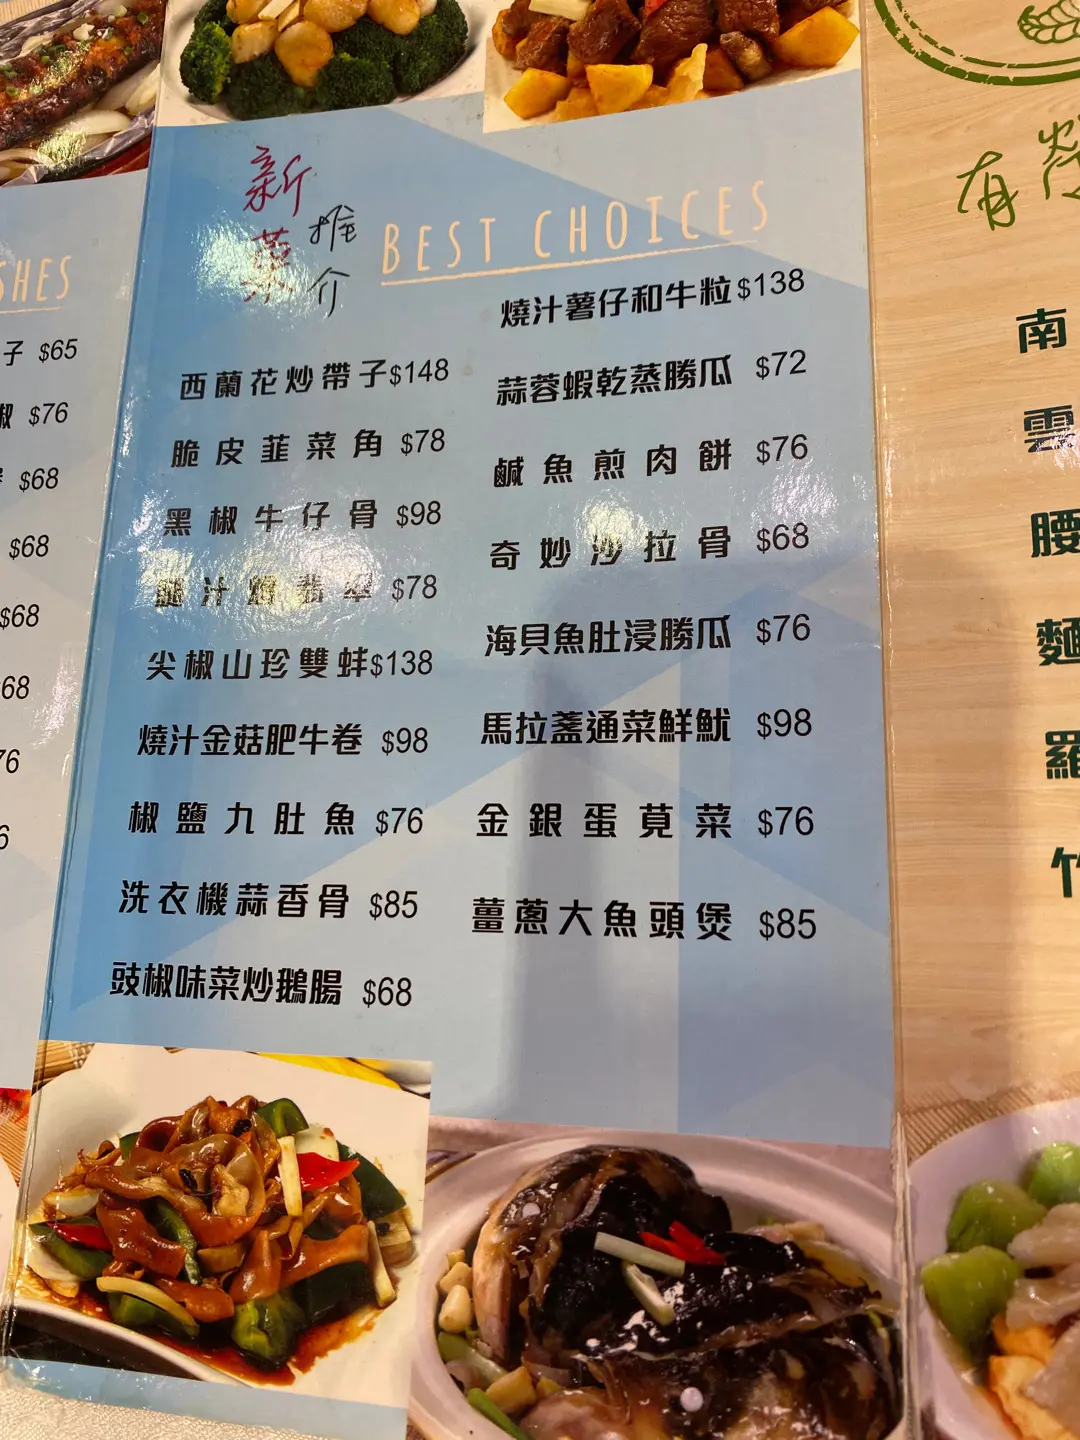 SHES
子 $65
椒 $76
$68
$68
$68
新菜
推介
BEST CHOICES
西蘭花炒帶子$148
脆皮韮菜角 $78
黑椒牛仔骨 $98
$78
尖椒山珍雙蚌$138
燒汁金菇肥牛卷 $98
椒鹽九肚魚 $76
洗衣機蒜香骨 $85
豉椒味菜炒鵝腸 $68
燒汁薯仔和牛粒$138
蒜蓉蝦乾蒸勝瓜 $72
鹹魚煎肉餅 $76
奇妙沙拉骨 $68
海貝魚肚浸勝瓜 $76
馬拉盞通菜鮮魷 $98
金銀蛋莧菜 $76
薑蔥大魚頭煲 $85
有
南
雲
腰
麵
羅
竹